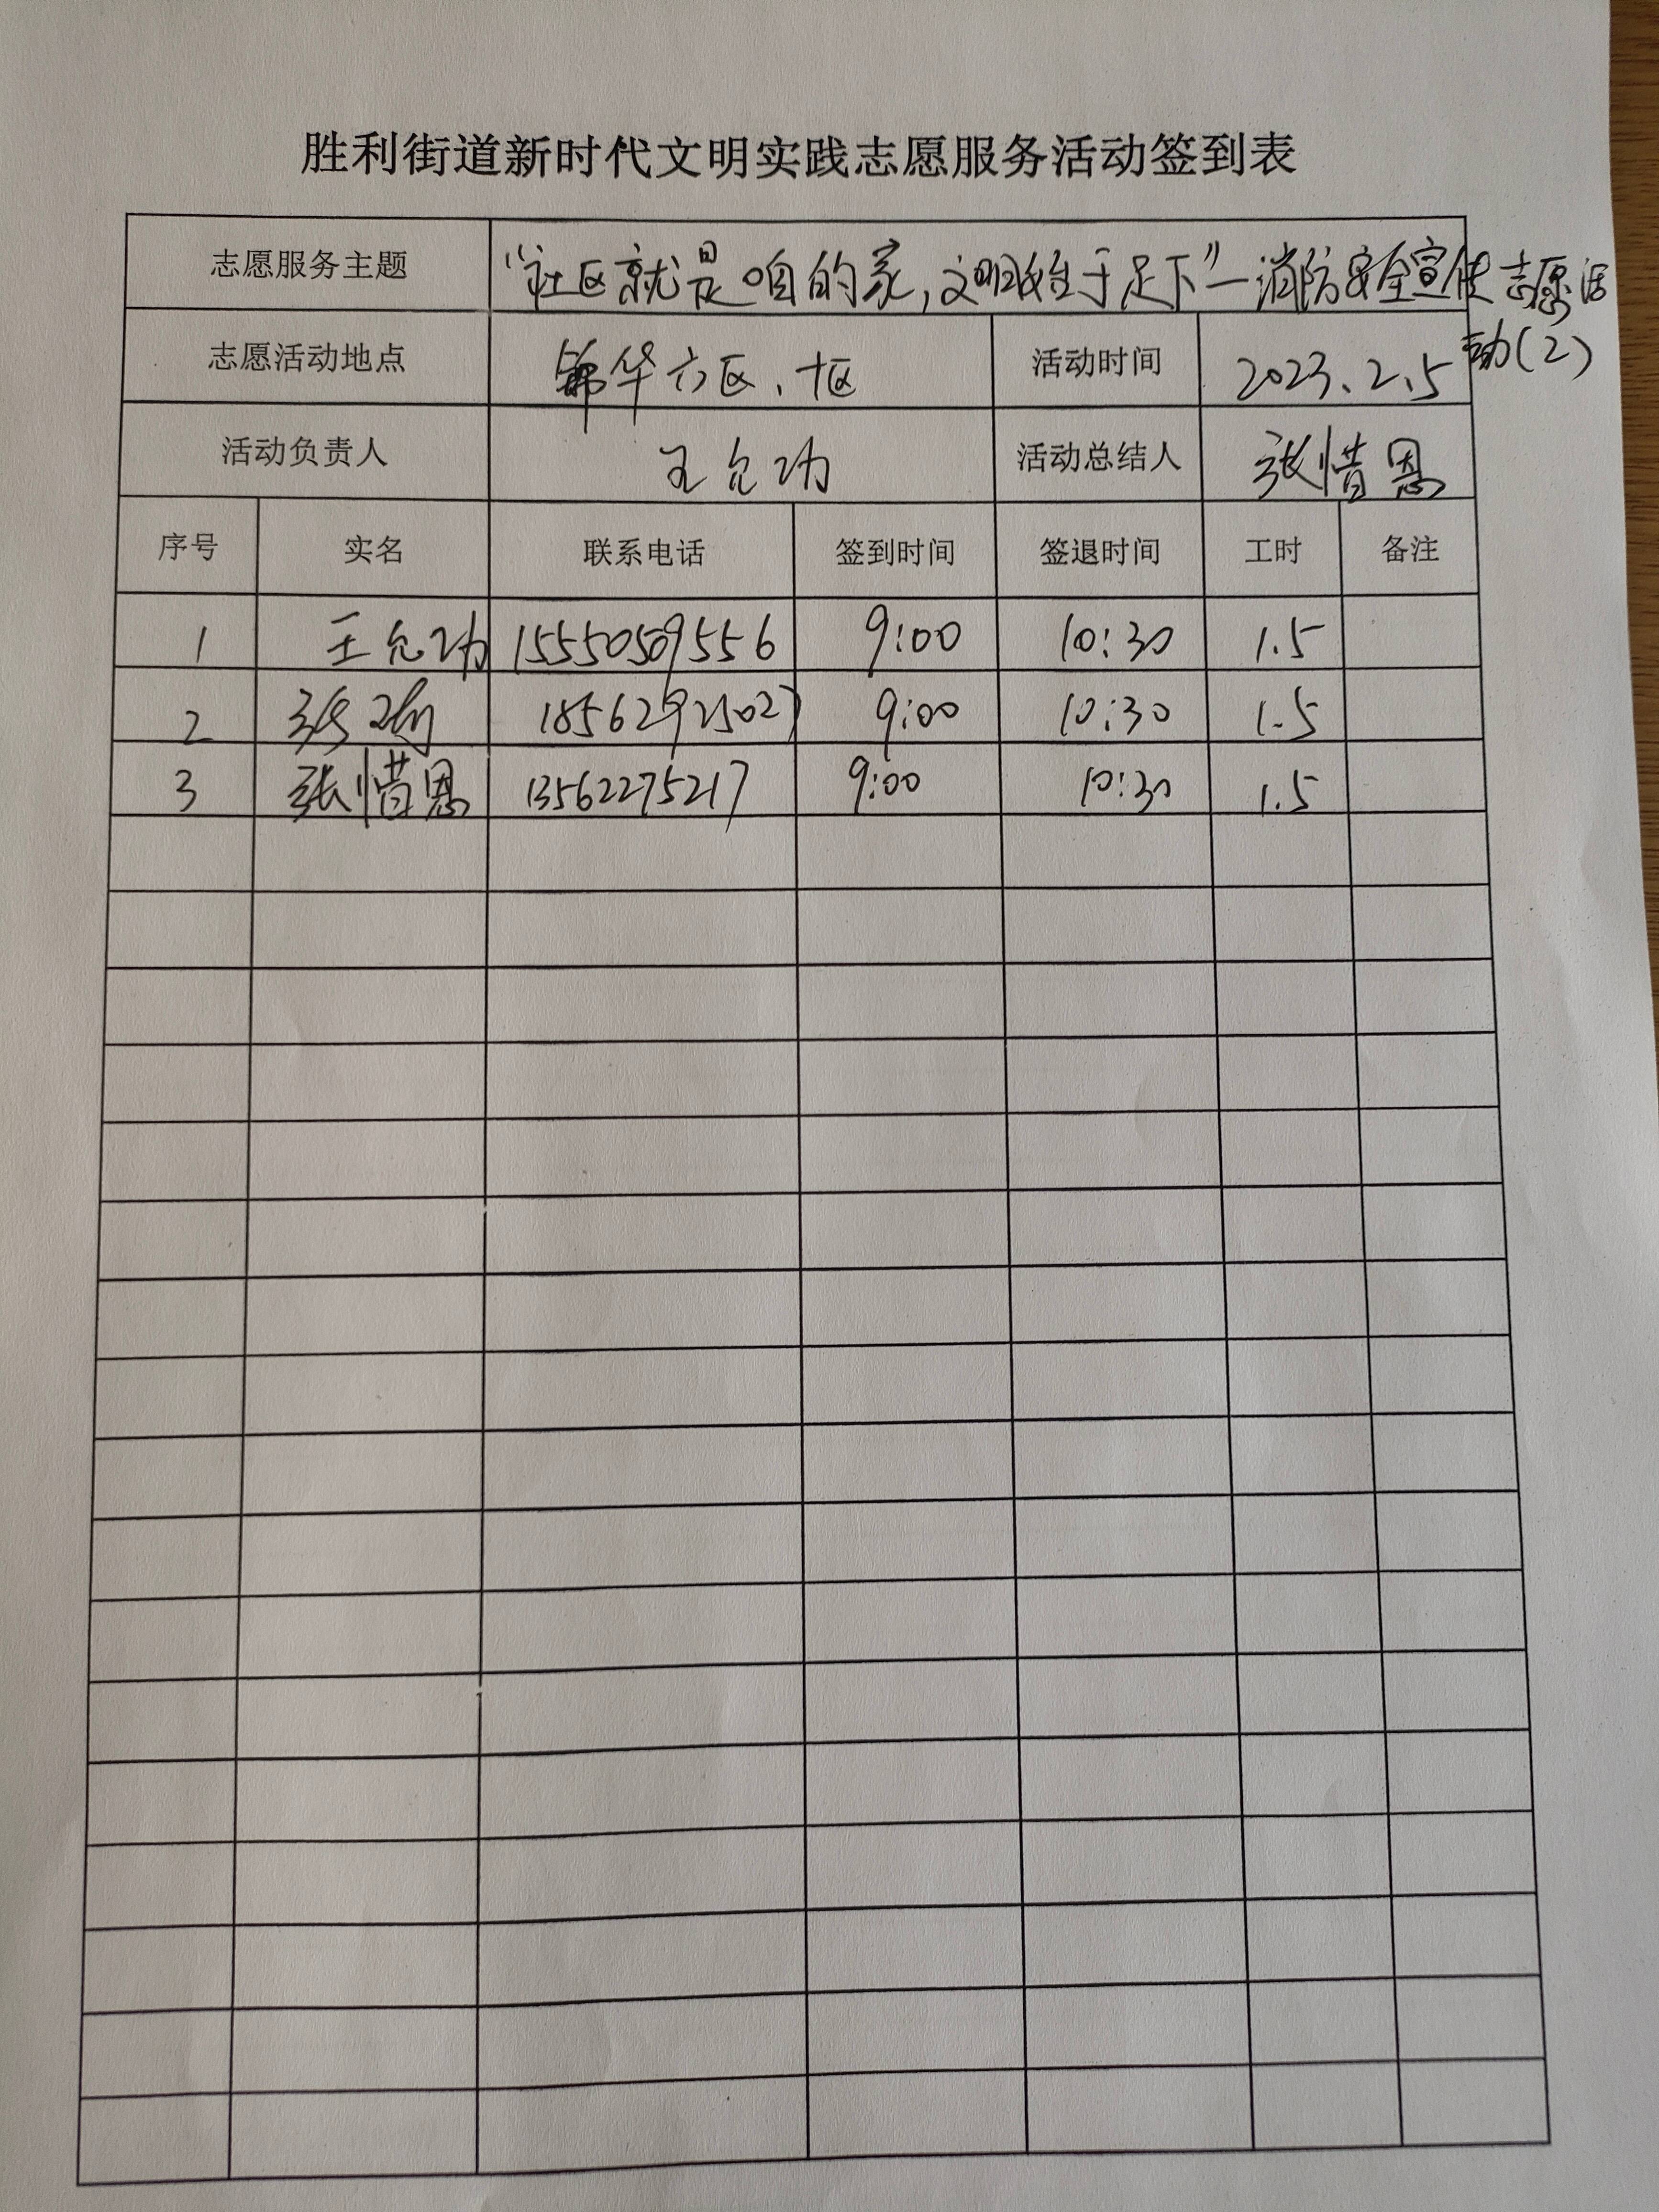 胜利街道新时代文明实践志愿服务活动签到表
志愿服务主题 “社区就是咱的家,文明始于足下”—消防安全宣传志愿活
动(2)
志愿活动地点 锦华六区、十区 活动时间 2023.2.5
活动负责人 王允功 活动总结人 张惜恩
序号 实名 联系电话 签到时间 签退时间 工时 备注
1 王允功 15550509556 9:00 10:30 1.5
2 张 185629215027 9:00 10:30 1.5
3 张惜恩 13562275217 9:00 10:30 1.5